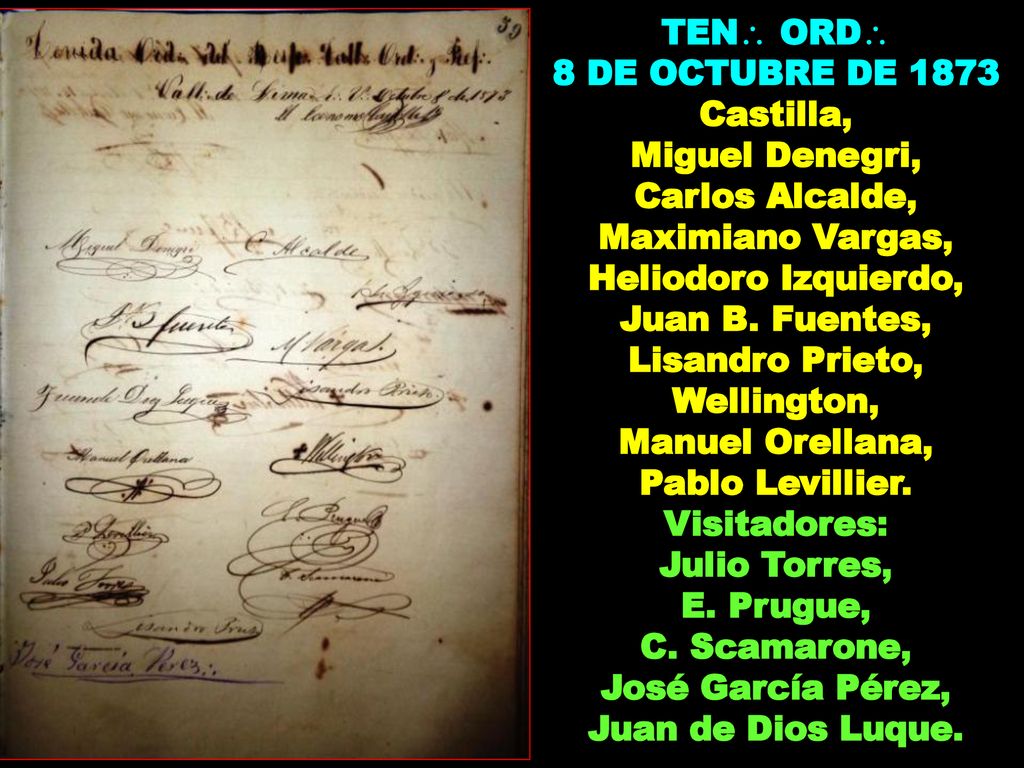 39
Tenida Ord∴ del Resp∴ Tall∴ Ord∴ y Ref∴
Vall∴ de Lima E∴ V∴ Octubre 8 de 1873
El Economo Castilla
Miguel Denegri
C. Alcalde
J. B. Fuentes
M Vargas
Lisandro Prieto
Manuel Orellana
Wellington
P. Levillier
E. Prugue
Julio Torres
C. Scamarone
Lisandro Prieto
José García Pérez∴
TEN∴ ORD∴
8 DE OCTUBRE DE 1873
Castilla,
Miguel Denegri,
Carlos Alcalde,
Maximiano Vargas,
Heliodoro Izquierdo,
Juan B. Fuentes,
Lisandro Prieto,
Wellington,
Manuel Orellana,
Pablo Levillier.
Visitadores:
Julio Torres,
E. Prugue,
C. Scamarone,
José García Pérez,
Juan de Dios Luque.